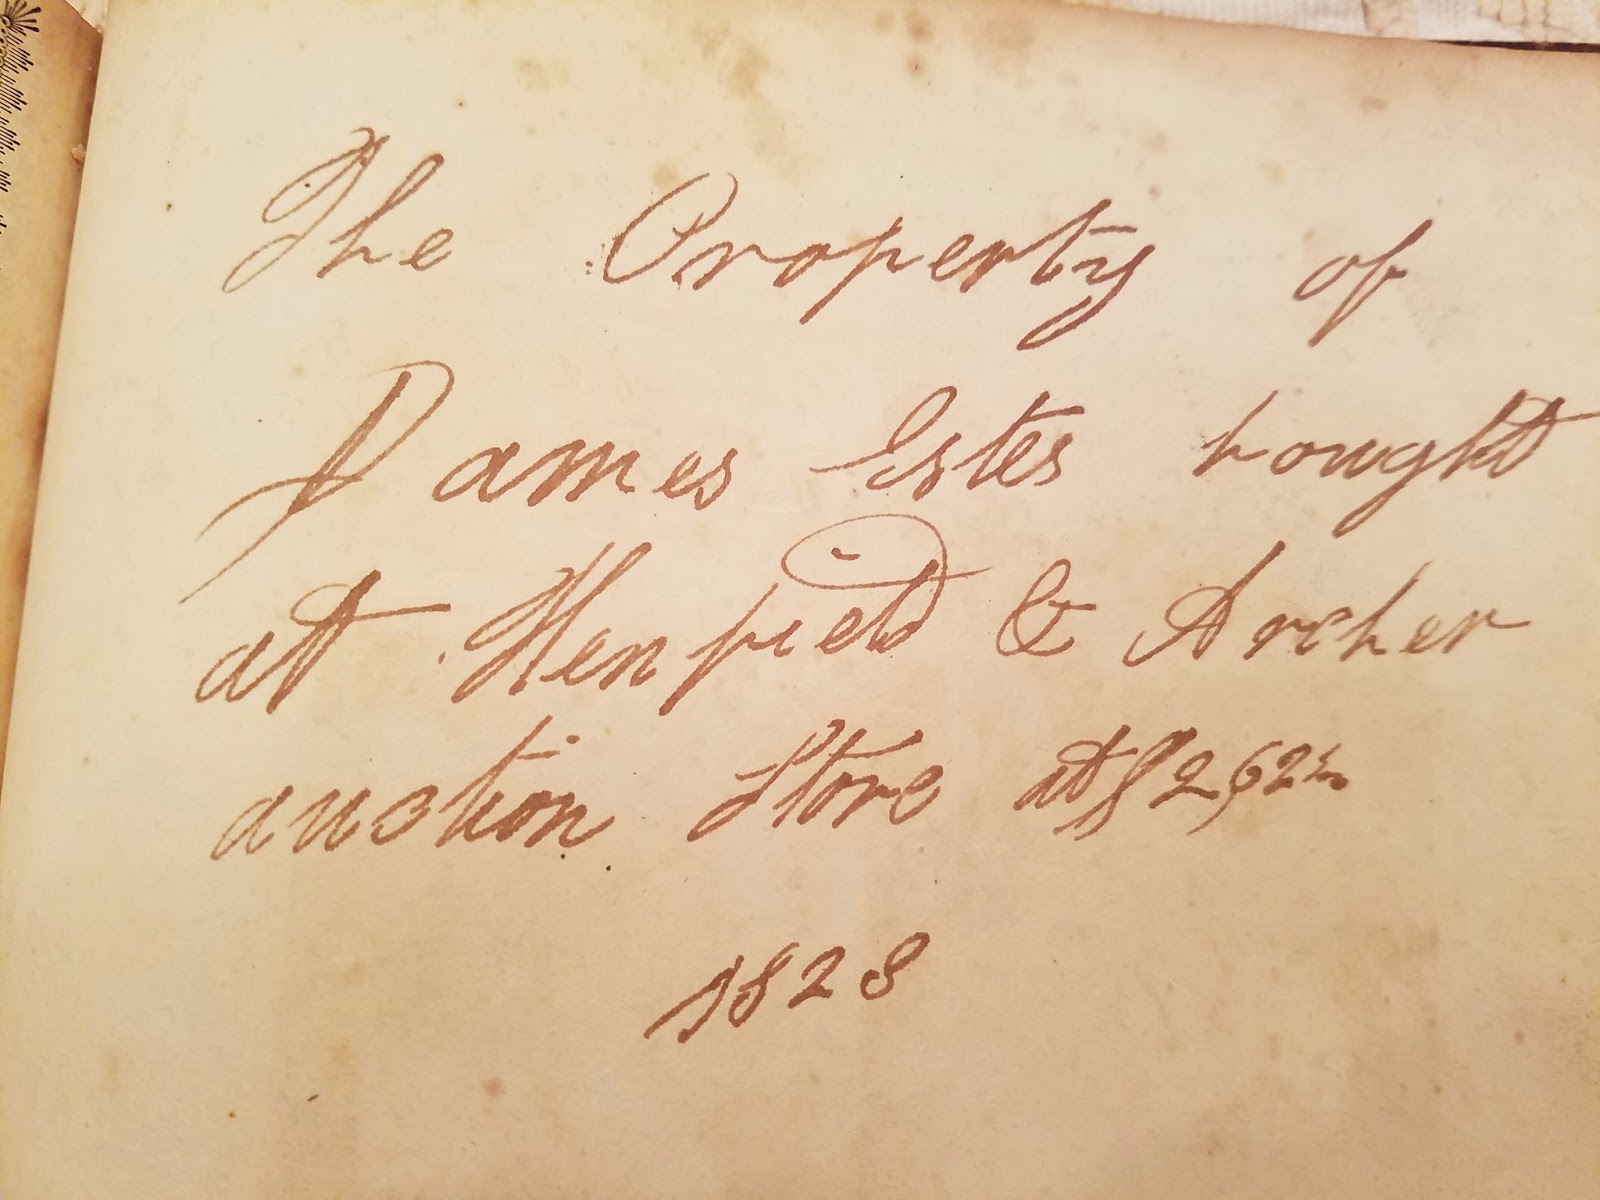 The Property of
James Estes bought
at Henfield & Archer
auction Store at $2,62½
1828